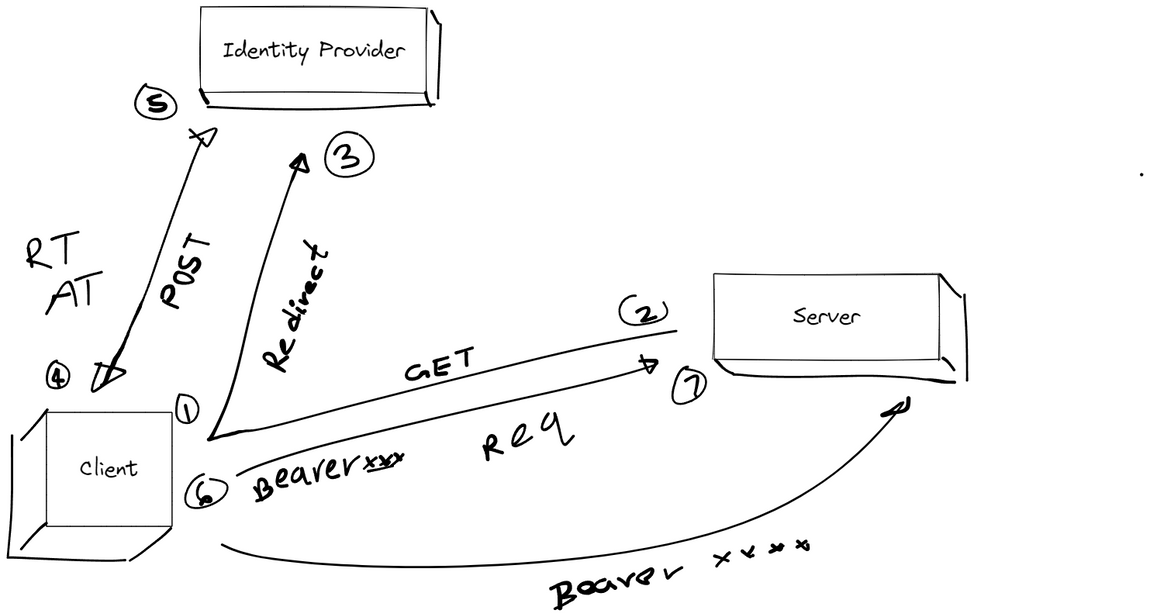 Identity Provider
5
3
RT
AT
POST
Redirect
2
Server
4
GET
7
1
Client
Req
Bearer xxx
6
Bearer xxxx